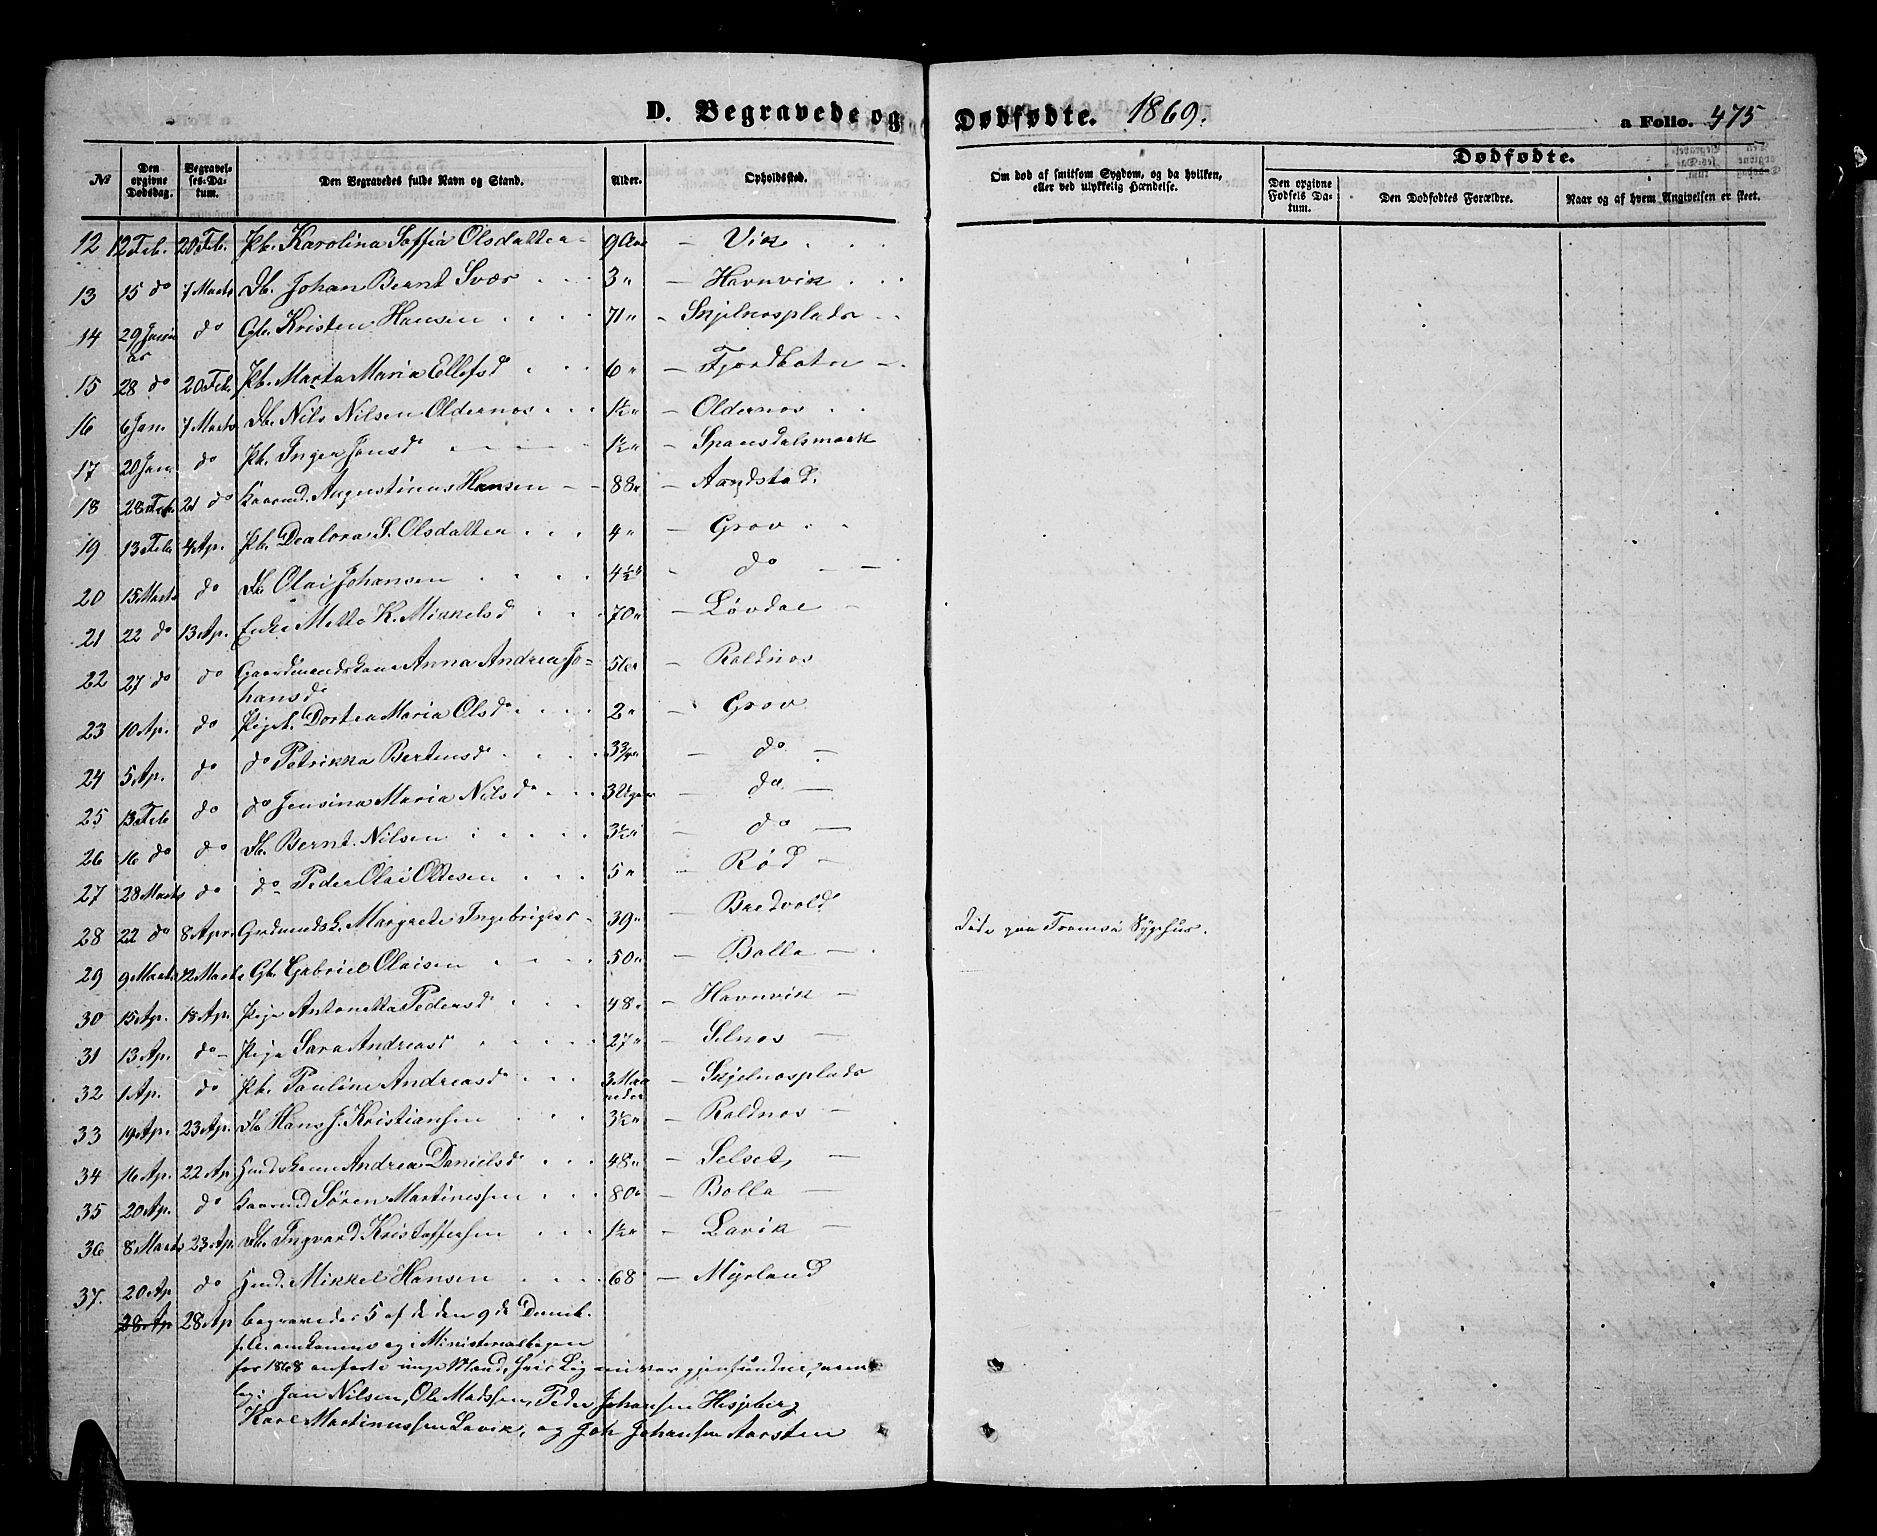 D. Begravede og Dødfødte. 1869. a Folio. 475
№ Den opgivne Dødsdag. Begravelses-Datum. Den Begravedes fulde Navn og Stand. Alder. Opholdssted. Om død af smitsom Sygdom, og da hvilken, eller ved ulykkelig Hændelse. Dødfødte.
Den opgivne Fødsels Datum. Den Dødfødtes Forældre. Naar og af hvem Angivelsen er skeet.
12 12 Feb. 20 Feb. Pb. Karolina Soffia Olsdatter 9 Aar — Vik
13 15 do 7 Marts Db. Johan Bernt Svær 3 " — Havnvik
14 29 Januar do Gb. Kristen Hansen 71 " - Skjelnesplads
15 28 do 20 Feb. Pb. Marta Maria Ellefsd 6 " — Fjordbotn
16 6 Jan. 7 Marts Db. Nils Nilsen Oldernos 1½ " — Oldernos
17 20 Jan do Pb. Inger Jonsd 1½ " — Spansdalsmark
18 28 Feb. 21 do Kaarmd. Augustinus Hansen 88 " — Aandstad
19 13 Feb 4 Ap. Pb. Dealora S. Olsdatter 4 " — Grov
20 15 Marts do Db Olai Johansen 4½ " - do
21 22 do 13 Ap. Enke Metta K. Mikkelsd 70 " — Løvdal
22 27 do do Gaardmandskone Anna Andrea Jo= 56 " — Roldnos
hansd
23 10 Ap. do Pigeb. Dortea Maria Olsd 2 " — Grov
24 5 Ap. do do Petrikka Bertensd 3¾ " — do
25 13 Feb do do Jensina Maria Nilsd 3 Uger — do
26 16 do do Db. Bernt Nilsen 3½ " — do
27 28 Marts do do Peder Olai Ottesen 5 " — Rød
28 22 do 8 Apr. Grdmandsk. Margrete Ingebrigts 39 " — Bredvold Døde paa Tromsø Sygehus.
29 9 Marts 12 Marts Gb. Gabriel Olaisen 50 " — Bolla
30 15 Ap. 18 Ap. Pige Antonetta Pedersd 48 " — Havnvik
31 13 Ap. do Pige Sara Andreasd 27 " — Selnos
32 1 Ap. do Pb. Pauline Andreasd 3 Maaneder — Skjelnosplads
33 19 Ap. 23 Ap. Db Hans J. Kristiansen 3½ " — Roldnos
34 16 Ap. 22 Ap. Hmdskone Andrea Danielsd 48 " — Selset
35 20 Ap. do Kaarmd Søren Martinussen 80 " — Bolla
36 8 Marts 23 Ap. Db. Ingvard Kristoffersen 1½ " — Lavik
37. 20 Ap do Hmd. Mikkel Hansen 68 " — Myrland
28 Ap 28 Ap begravedes 5 af de den 9de
omkomne og i Ministerialbogen
for 1868 anførte Mænd, hvis Lig nu var gjenfundne, nem
lig: Jan Nilsen, Ole Madssen, Peder Johansen Hesjeberg
Karl Martinussen Lavik, og Joh Johansen Aarsten